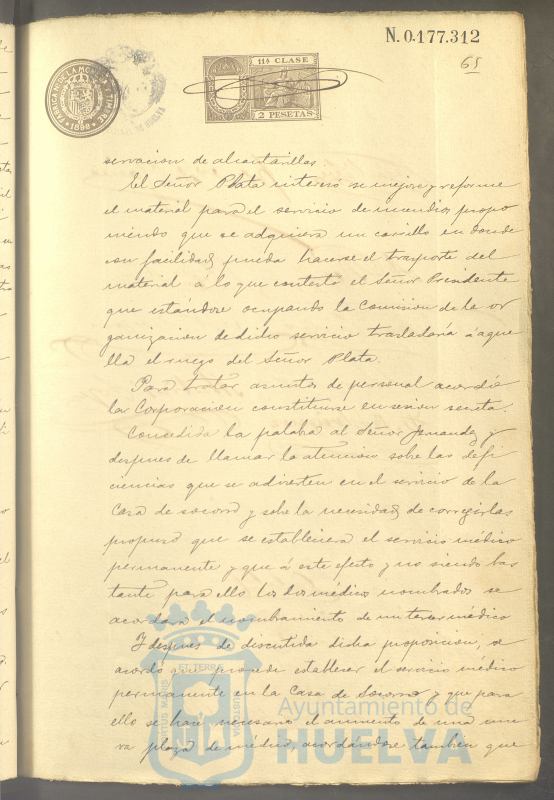 N. 0.177.312
65
FABRICA N. DE LA MONEDA Y TIMBRE
1898
11ª CLASE
2 PESETAS
servacion de alcantarillas
El Señor Plata interesó se mejore y reforme
el material para el servicio de incendios propo
niendo que se adquiera un carrillo en donde
con facilidad pueda hacerse el trasporte del
material á lo que contestó el Señor Presidente
que estándose ocupando la Comision de la or
ganizacion de dicho servicio trasladaría á aque
lla el ruego del Señor Plata.
Para tratar asuntos de personal acordó
la Corporacion constituirse en sesion secreta.
Concedida la palabra al Señor y
despues de llamar la atencion sobre las defi
ciencias que se advierten en el servicio de la
Casa de socorro y sobre la necesidad de corregirlas
propuso que se estableciera el servicio médico
permanente y que á este efecto y no siendo bas
tante para ello los dos médicos nombrados se
acordara el nombramiento de un tercer médico
Y despues de discutida dicha proposicion, se
acordó que procede establecer el servicio médico
permanente en la Casa de Socorro y que para
ello se hace necesario el aumento de una nue
va plaza de médico, acordándose tambien que
Ayuntamiento de
HUELVA